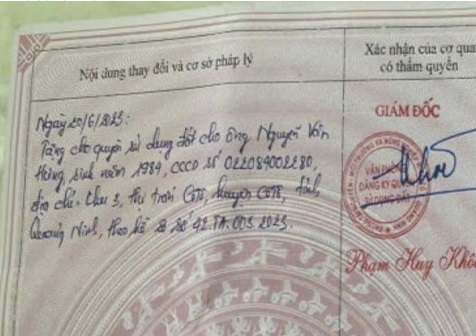 Nội dung thay đổi và cơ sở pháp lý
Xác nhận của cơ qua
có thẩm quyền
Ngày 20/6/2023:
Tặng cho quyền sử dụng đất cho ông Nguyễn Văn
Hùng, sinh năm 1984, CCCD số 022084002280,
địa chỉ: khu 3, thị trấn Cô Tô, huyện Cô Tô, tỉnh
Quảng Ninh, theo hồ sơ số 42.TA.003.2023.
GIÁM ĐỐC
VĂN PHÒNG
ĐĂNG KÝ QUYỀN
SỬ DỤNG ĐẤT
Phạm Huy Khô